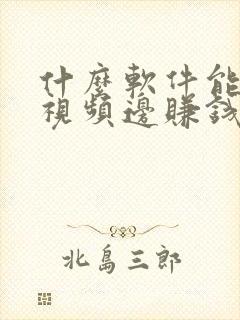 什麼軟件能
視頻邊賺錢
北島三郎